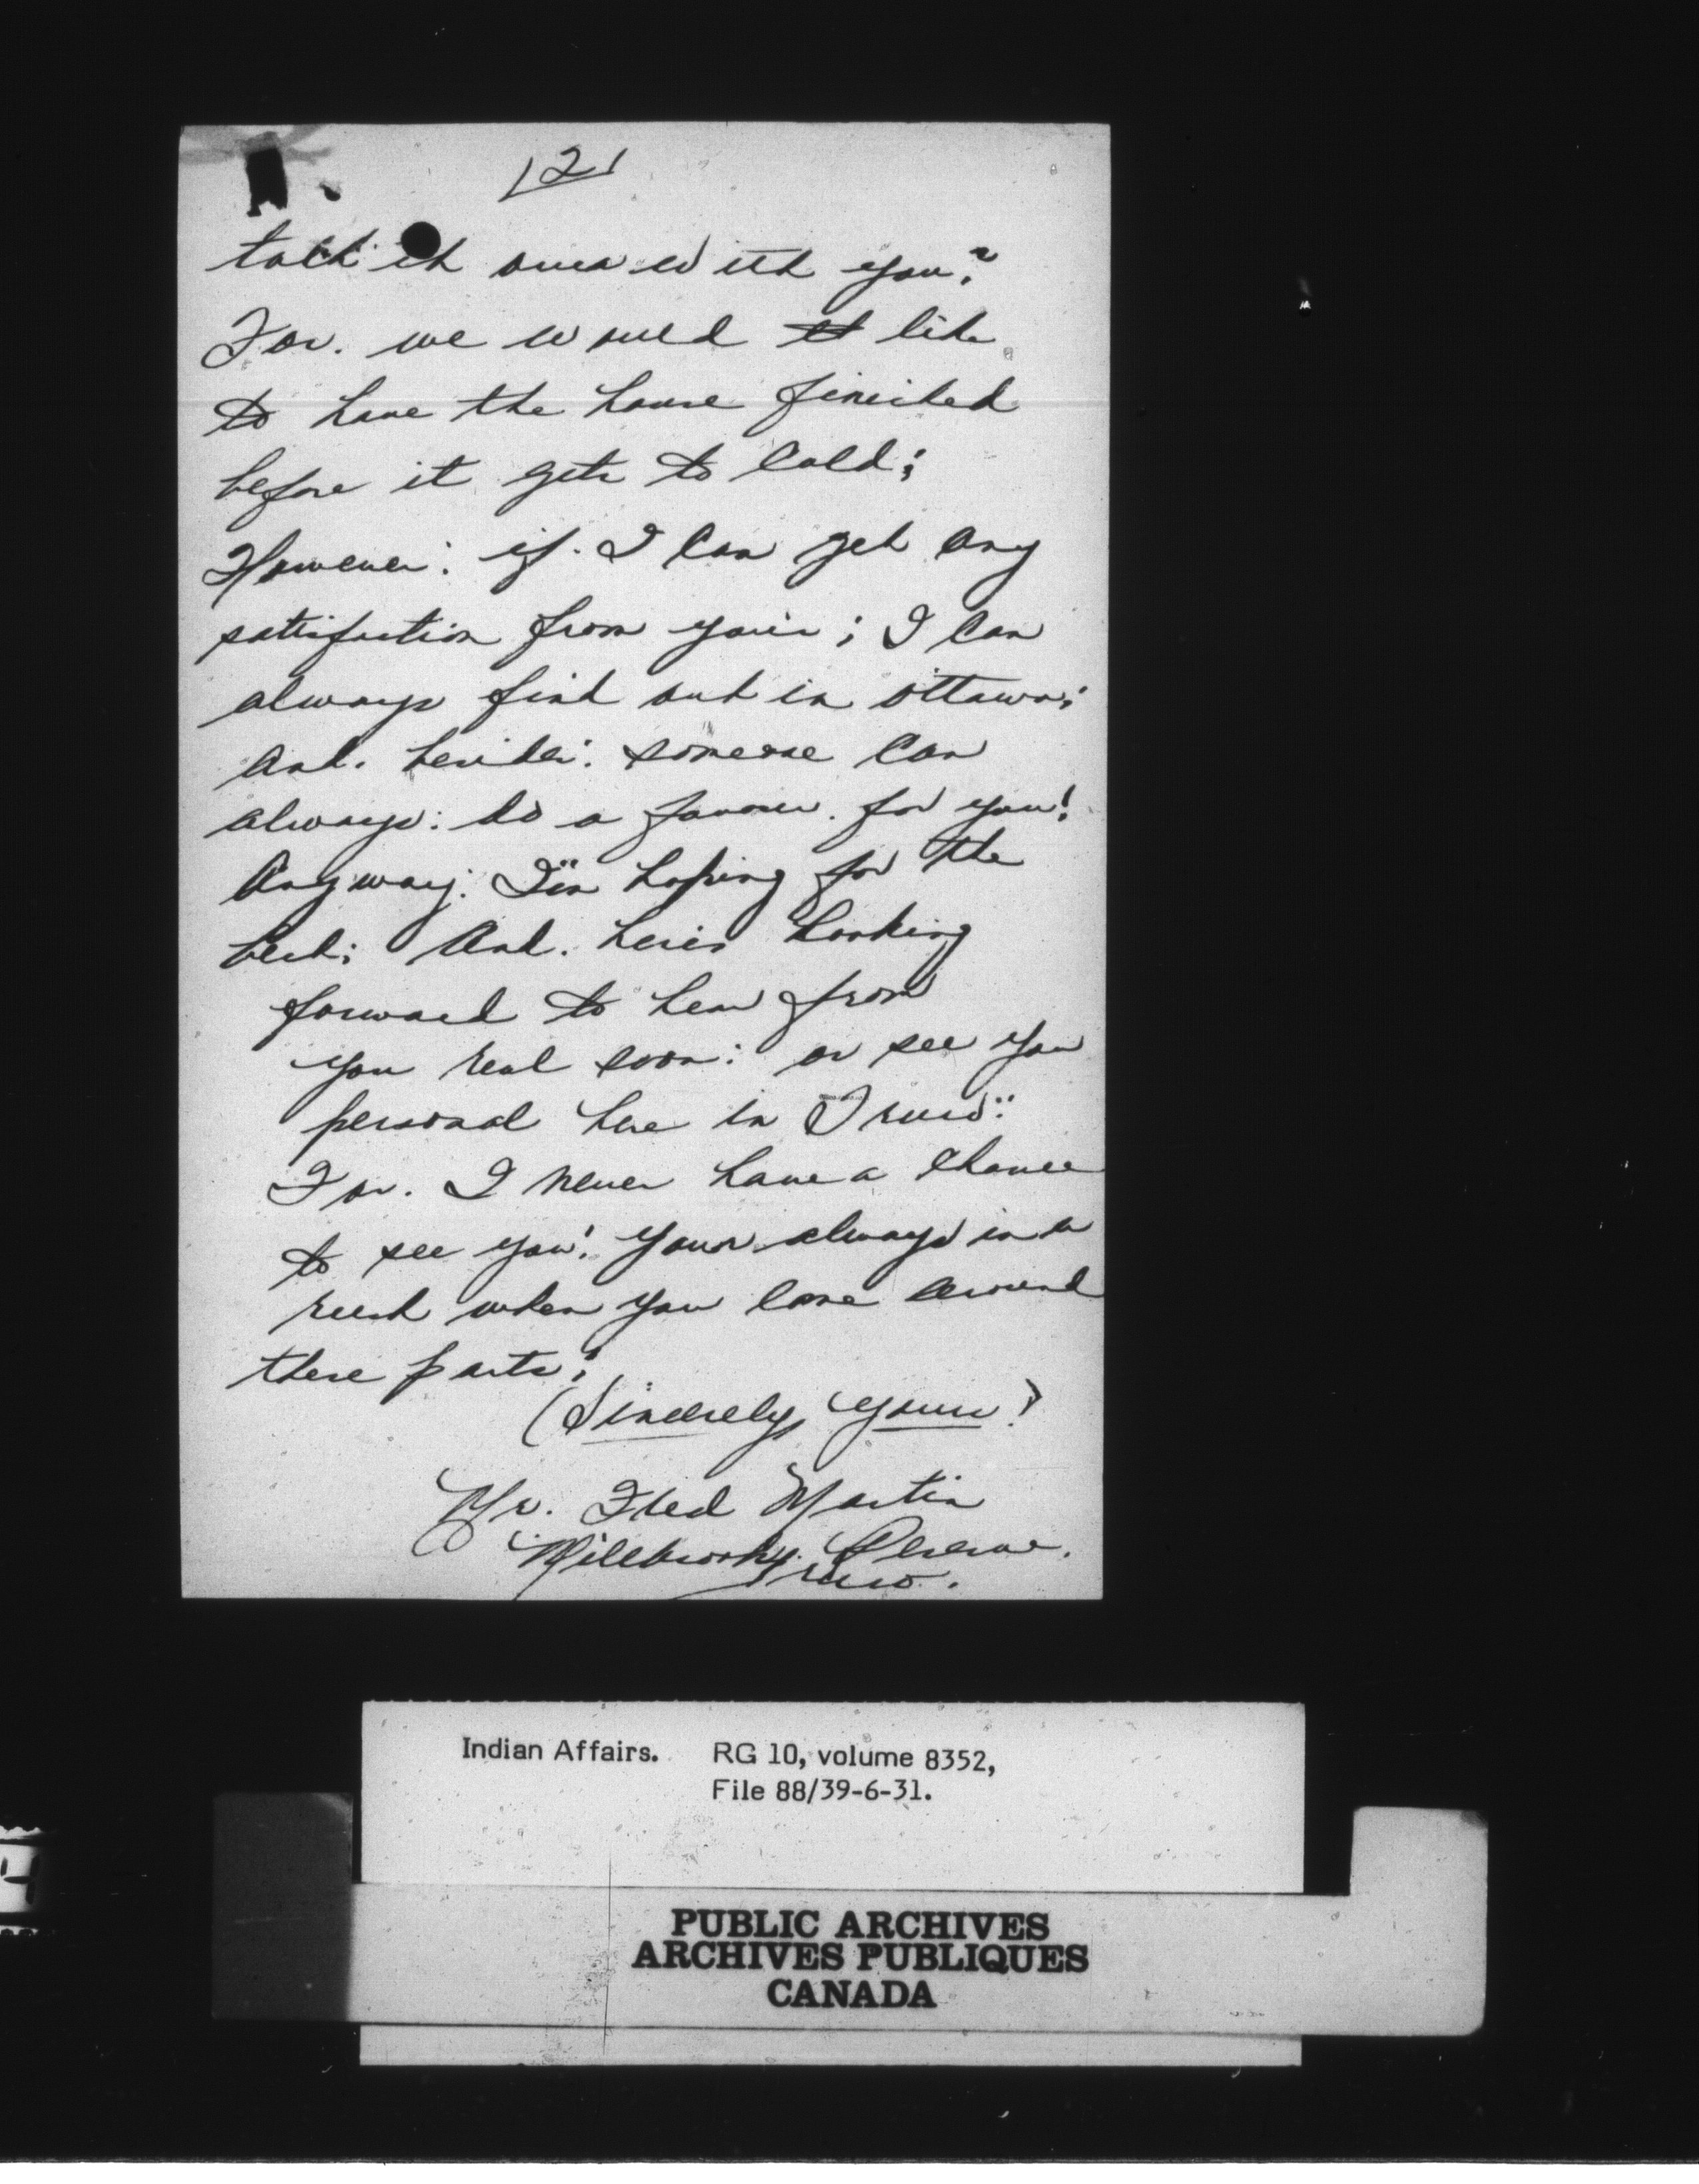 /2/
talk it over with you?
For. we would it like
to have the house finished
before it gets to cold;
However: if. I can get any
satisfaction from you; I can
always find out in ottawa;
And. besides: someone can
always: do a favour. for you!
Anyway: I"m hoping for the
best; And. here's looking
forward to hear from
you real soon: or see you
personal here in Truro:
For. I never have a chance
to see you! Your always in a
rush when you come around
these parts;
(Sincerely Yours?
Mr. Fred Martin
Millbrook Reserve.
Truro.
Indian Affairs. RG 10, volume 8352,
File 88/39-6-31.
PUBLIC ARCHIVES
ARCHIVES PUBLIQUES
CANADA